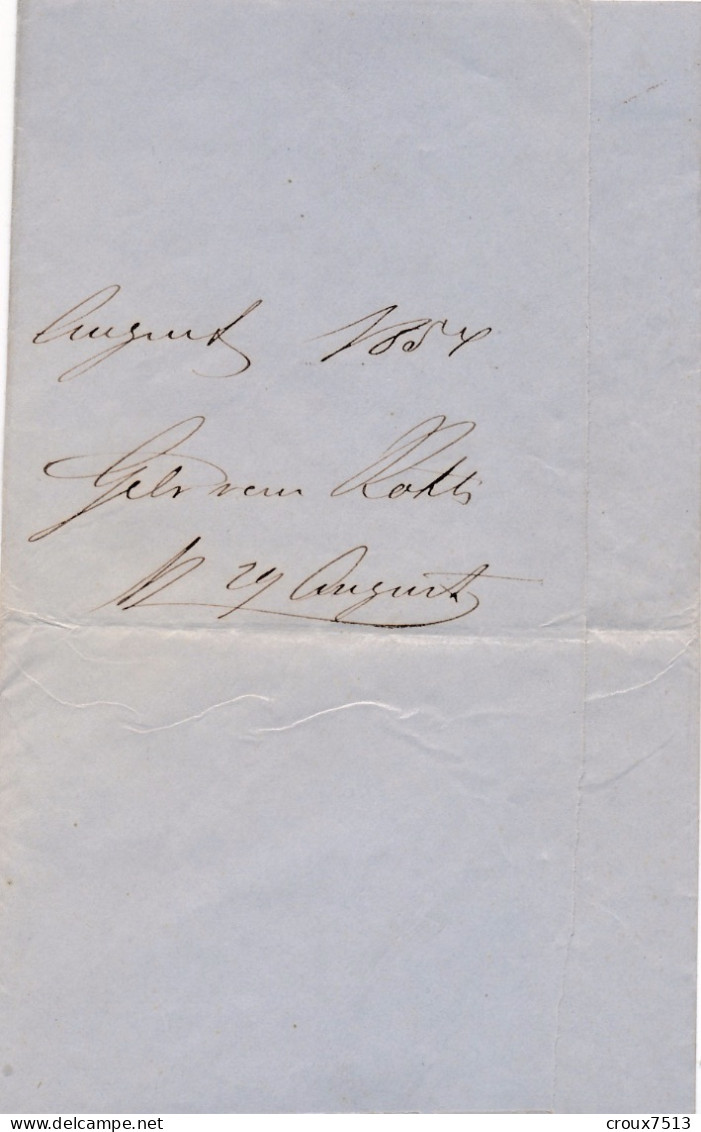 August 1857
Gebr van
29 August
delcampe.net
croux7513